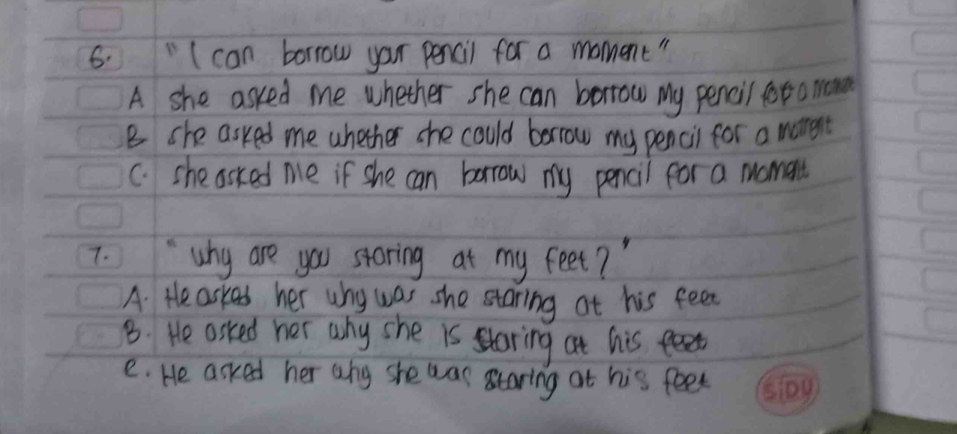 6. "I can borrow your pencil for a moment"
A she asked me whether she can borrow my pencil for a moment
B she asked me whether she could borrow my pencil for a moment
C. she asked me if she can borrow my pencil for a moment
7. "why are you staring at my feet?"
A. He asked her why was she staring at his feet
B. He asked her why she is staring at his feet
C. He asked her why she was staring at his feet
SIDU